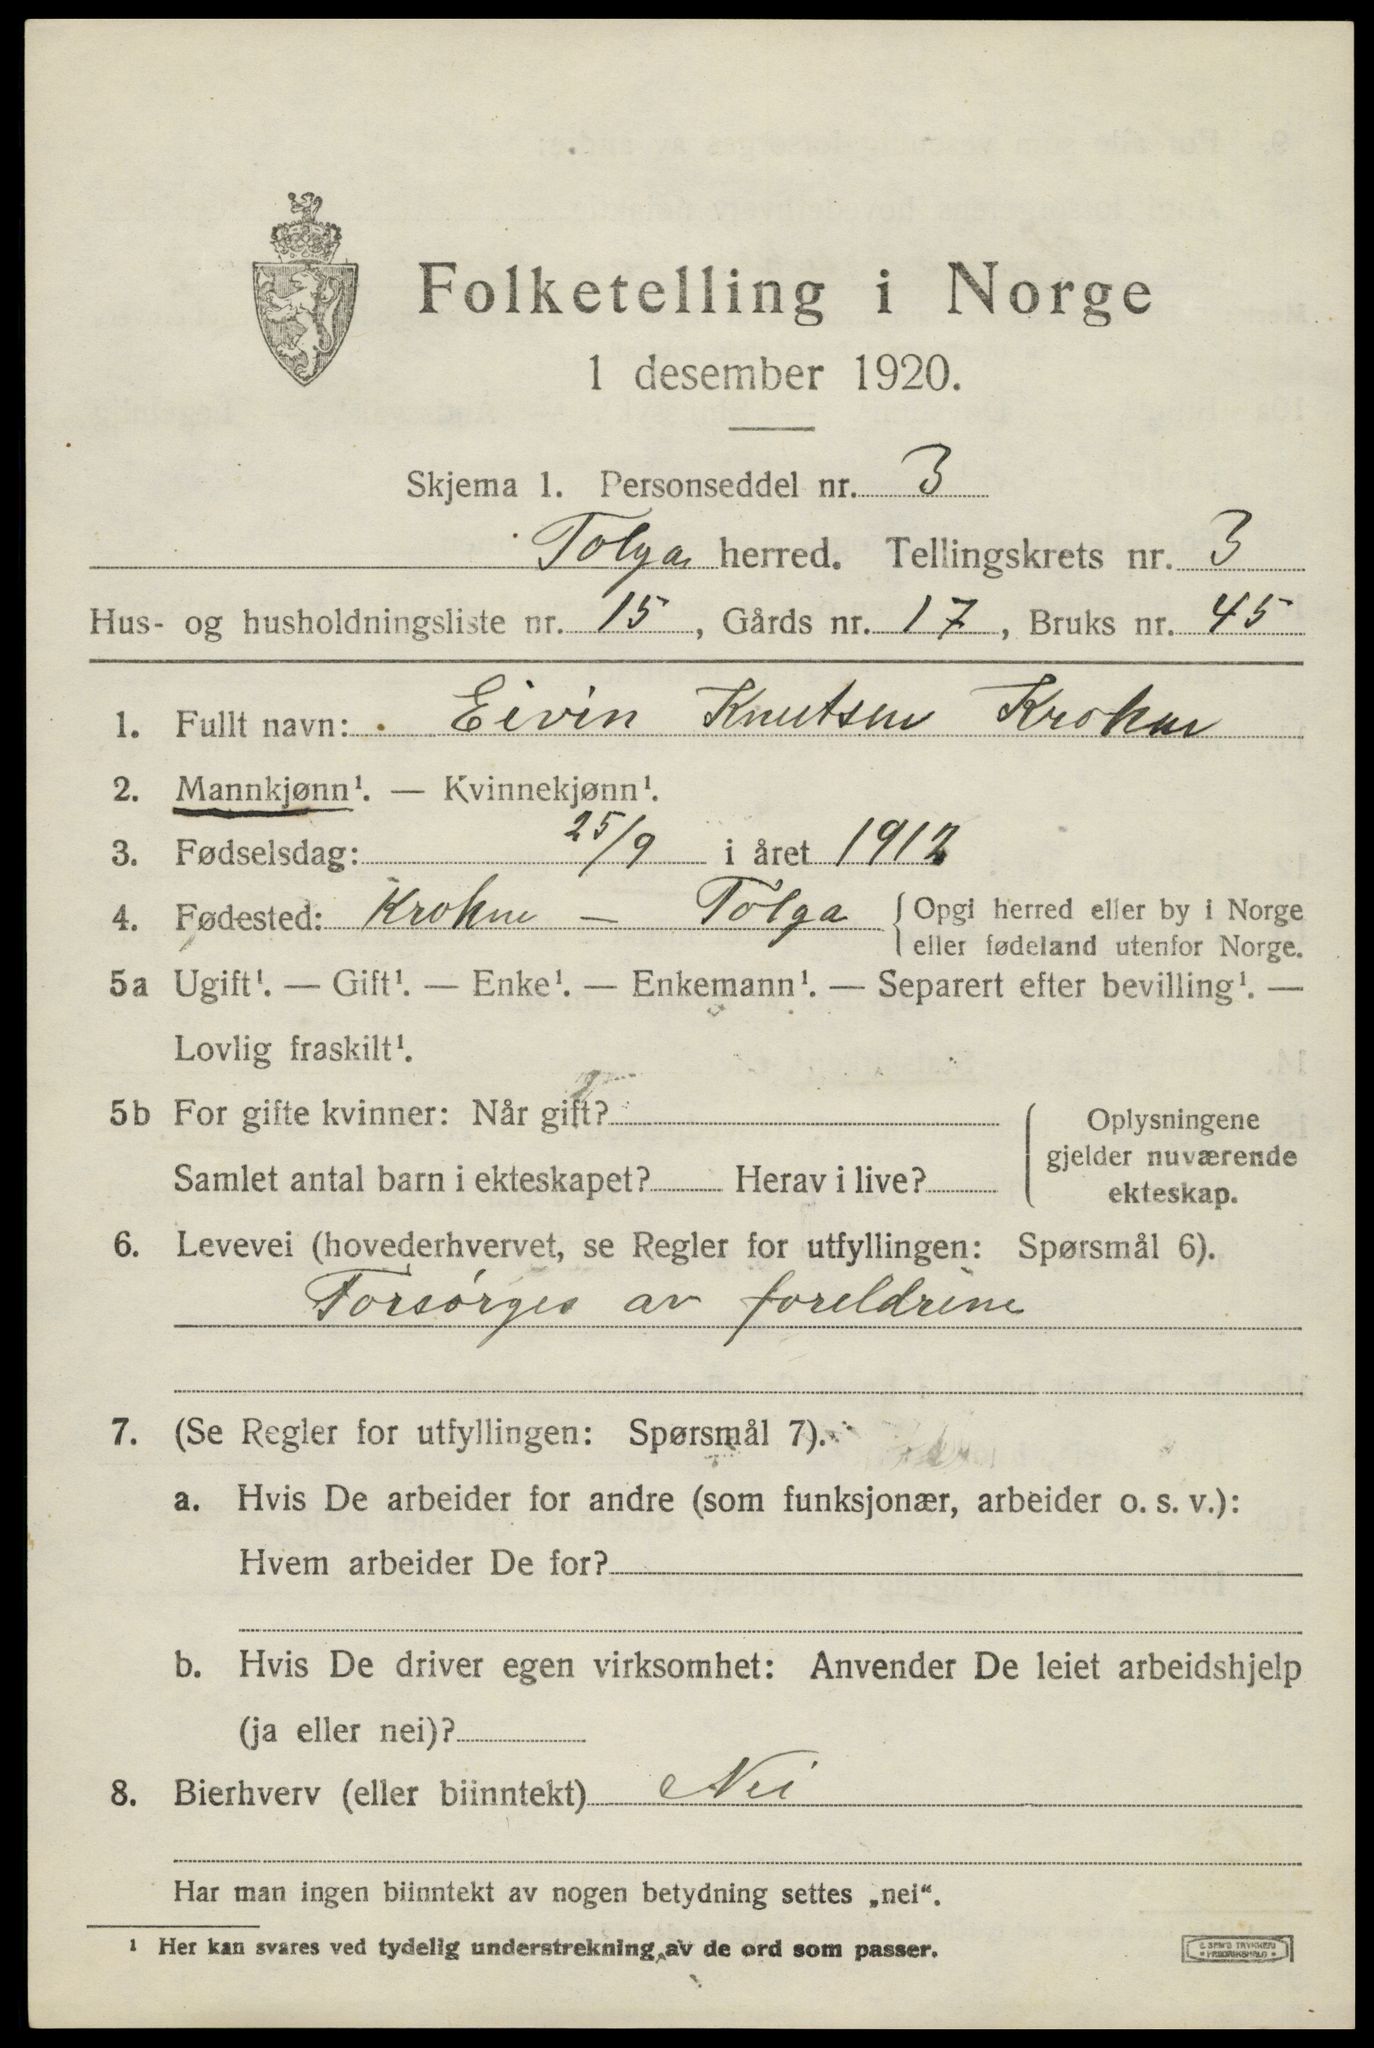 Folketelling i Norge
1 desember 1920.
Skjema 1. Personseddel nr. 3
Tolga herred. Tellingskrets nr. 3
Hus- og husholdningsliste nr. 15, Gårds nr. 17, Bruks nr. 45
1. Fullt navn: Eivin Knutsen Krohne
2. Mannkjønn¹. — Kvinnekjønn¹.
3. Fødselsdag: 25/9 i året 1912
4. Fødested: Krohne — Tolga { Opgi herred eller by i Norge
eller fødeland utenfor Norge.
5a Ugift¹. — Gift¹. — Enke¹. — Enkemann¹. — Separert efter bevilling¹. —
Lovlig fraskilt¹.
5b For gifte kvinner: Når gift?
Samlet antal barn i ekteskapet? Herav i live?
Oplysningene
gjelder nuværende
ekteskap.
6. Levevei (hovederhvervet, se Regler for utfyllingen: Spørsmål 6).
Forsørges av foreldrene
7. (Se Regler for utfyllingen: Spørsmål 7).
a. Hvis De arbeider for andre (som funksjonær, arbeider o. s. v.):
Hvem arbeider De for?
b. Hvis De driver egen virksomhet: Anvender De leiet arbeidshjelp
(ja eller nei)?
8. Bierhverv (eller biinntekt) Nei
Har man ingen biinntekt av nogen betydning settes „nei“.
¹ Her kan svares ved tydelig understrekning av de ord som passer.